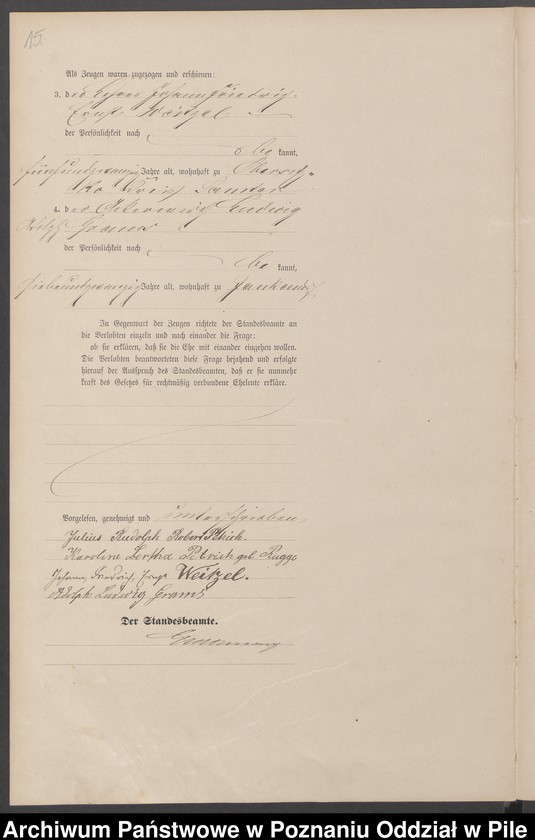 15
Als Zeugen waren zugezogen und erschienen:
3. der Johann Friedrich
Ernst Weitzel
der Persönlichkeit nach
be kannt,
fünfundzwanzig Jahre alt, wohnhaft zu
Kreis Samter
4. der Ludwig
Adolph Grams
der Persönlichkeit nach
be kannt,
siebenundzwanzig Jahre alt, wohnhaft zu
In Gegenwart der Zeugen richtete der Standesbeamte an
die Verlobten einzeln und nach einander die Frage:
ob sie erklären, daß sie die Ehe mit einander eingehen wollen.
Die Verlobten beantworteten diese Frage bejahend und erfolgte
hierauf der Ausspruch des Standesbeamten, daß er sie nunmehr
kraft des Gesetzes für rechtmäßig verbundene Eheleute erkläre.
Vorgelesen, genehmigt und unterschrieben
Julius Rudolph Robert Petrich.
Karoline Bertha Petrich geb. Rugge
Johann Friedrich Ernst Weitzel.
Adolph Ludwig Grams
Der Standesbeamte.
Archiwum Państwowe w Poznaniu Oddział w Pile